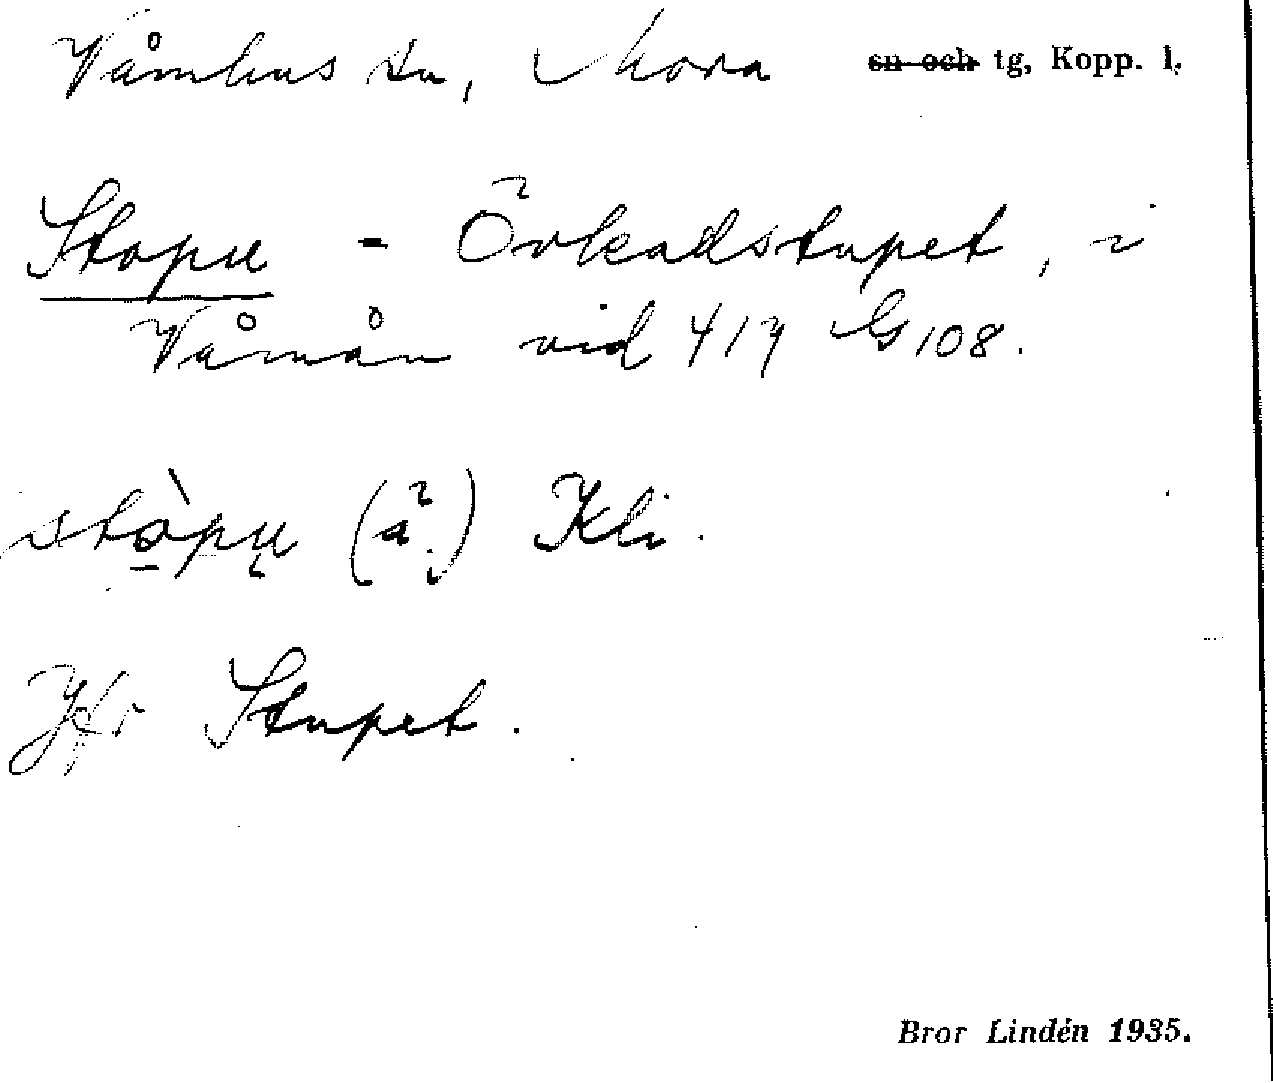 Våmhus sn, Mora sn och tg, Kopp. l.
Stopu - Örkadstupet, i
Våmån vid 417 G 108.
stòpu̜ (å².) Kli.
Jfr Stupet.
Bror Lindén 1935.